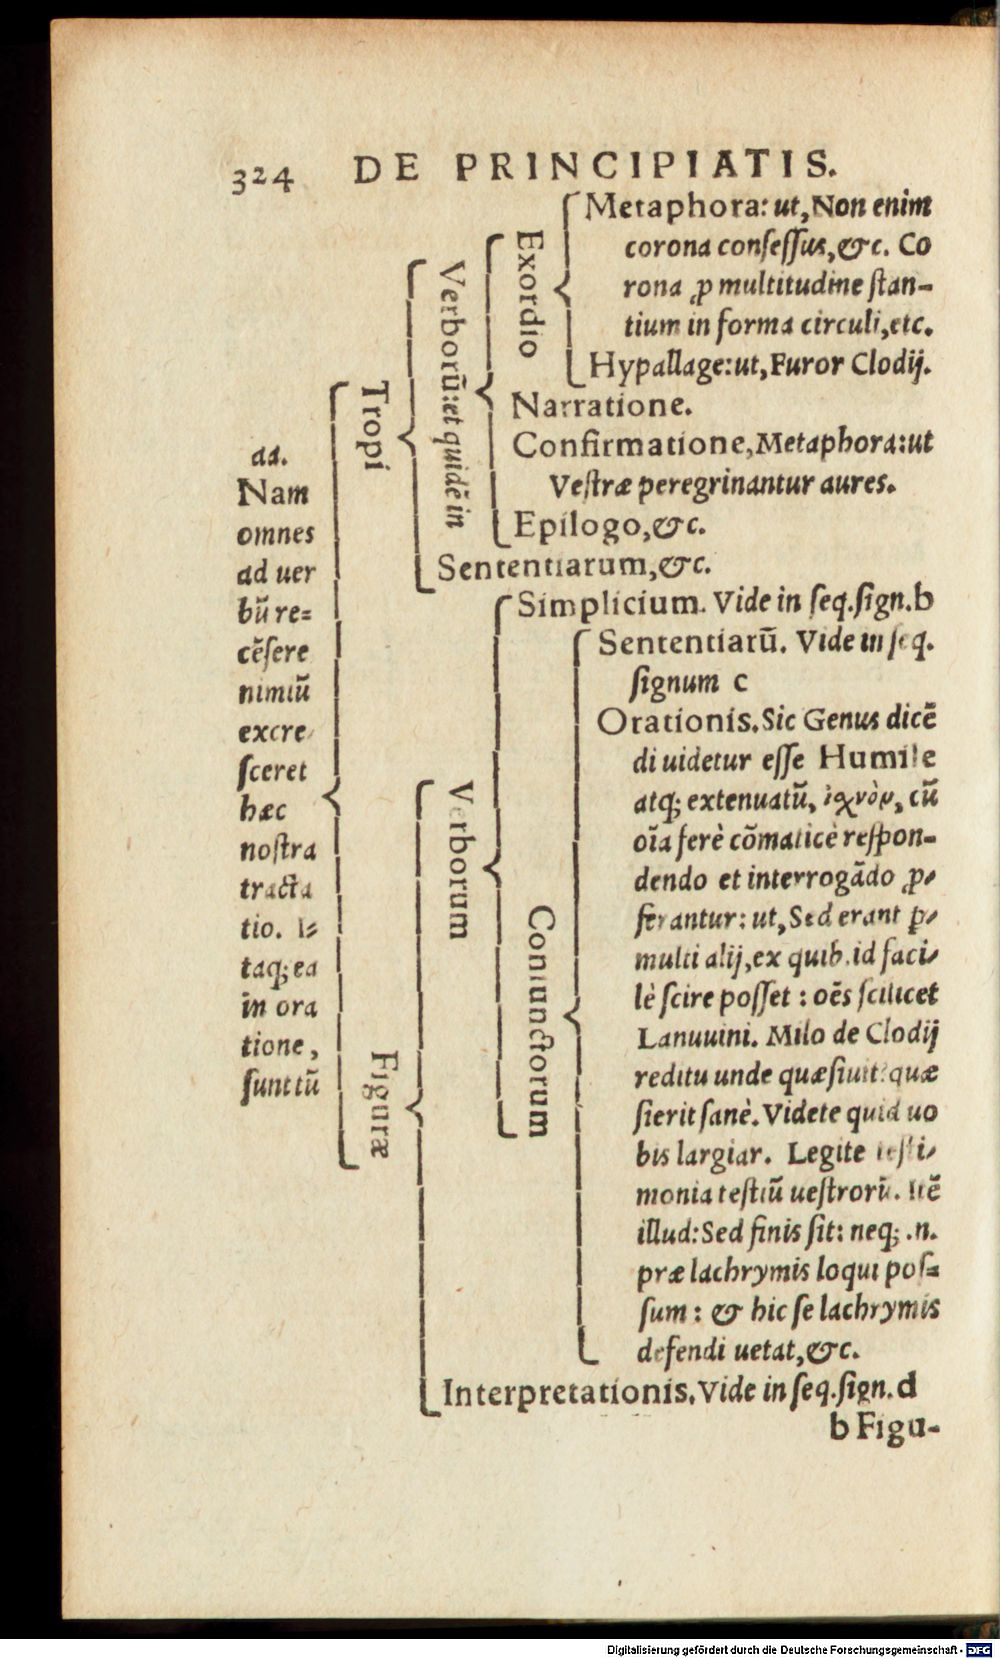 324 DE PRINCIPIATIS.
aa.
Nam
omnes
ad uer
bũ re=
cẽſere
nimiũ
excre
ſceret
hæc
noſtra
tracta
tio. I=
taq; ea
in ora
tione,
ſunt tũ
Tropi
Verborũ: et quidẽ in
Exordio
Metaphora: ut, Non enim
corona conſeſſus, &c. Co
rona ꝓ multitudine ſtan-
tium in forma circuli, etc.
Hypallage: ut, Furor Clodij.
Narratione.
Confirmatione, Metaphora: ut
Veſtræ peregrinantur aures.
Epilogo, &c.
Sententiarum, &c.
Figuræ
Verborum
Simplicium. Vide in ſeq. ſign. b
Coniunctorum
Sententiarũ. Vide in ſeq.
ſignum c
Orationis. Sic Genus dicẽ
di uidetur eſſe Humile
atq; extenuatũ, ἰσχνὸν, cũ
oĩa ferè cõmaticè reſpon-
dendo et interrogãdo ꝓ-
ferantur: ut, Sed erant ꝑ-
multi alij, ex quib. id faci-
lè ſcire poſſet: oẽs ſcilicet
Lanuuini. Milo de Clodij
reditu unde quæſiuit? quæ
ſierit ſanè. Videte quid uo
bis largiar. Legite teſti-
monia teſtiũ ueſtrorũ. Itẽ
illud: Sed finis ſit: neq; .n.
præ lachrymis loqui poſ=
ſum: & hic ſe lachrymis
defendi uetat, &c.
Interpretationis. Vide in ſeq. ſign. d
b Figu-
Digitalisierung gefördert durch die Deutsche Forschungsgemeinschaft - DFG